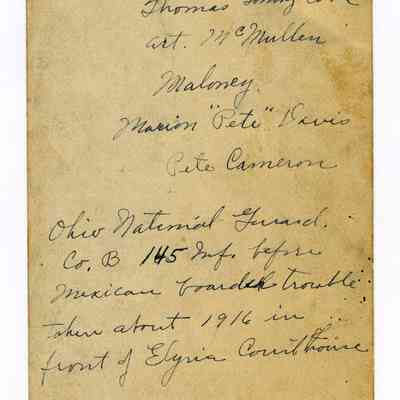 Thomas
Art. McMullen
Maloney.
Marion "Pete" Davis
Pete Cameron
Ohio National Guard.
Co. B 145 Inf. before
Mexican boarder trouble
taken about 1916 in
front of Elyria Courthouse